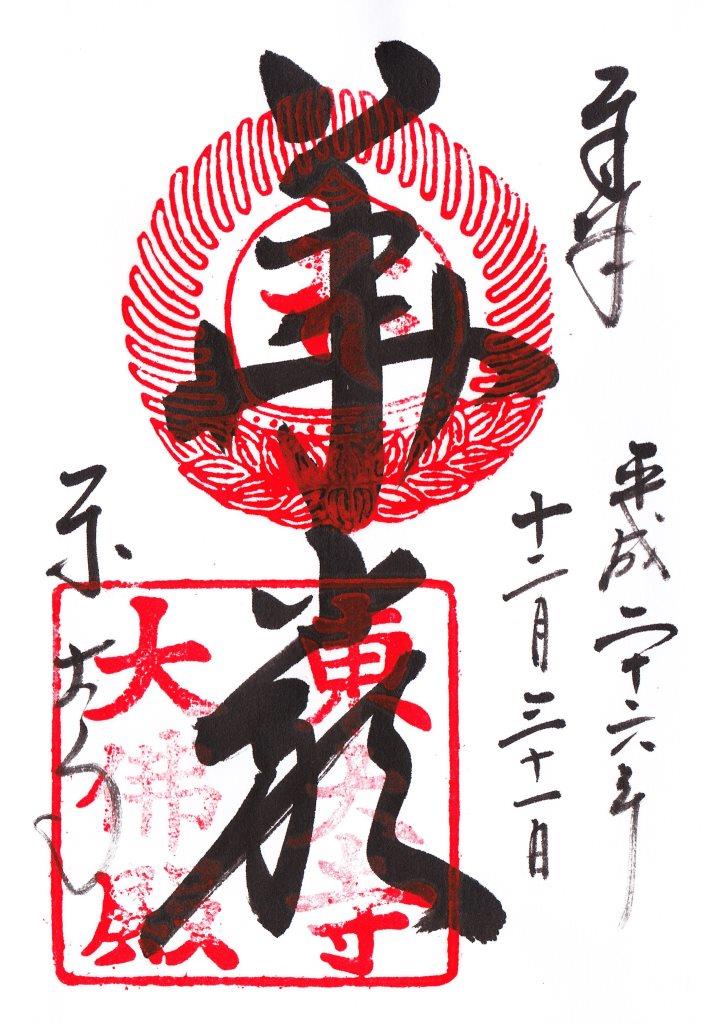 奉拝
平成二十六年
十二月三十一日
華厳
東大寺
東大寺
大佛殿